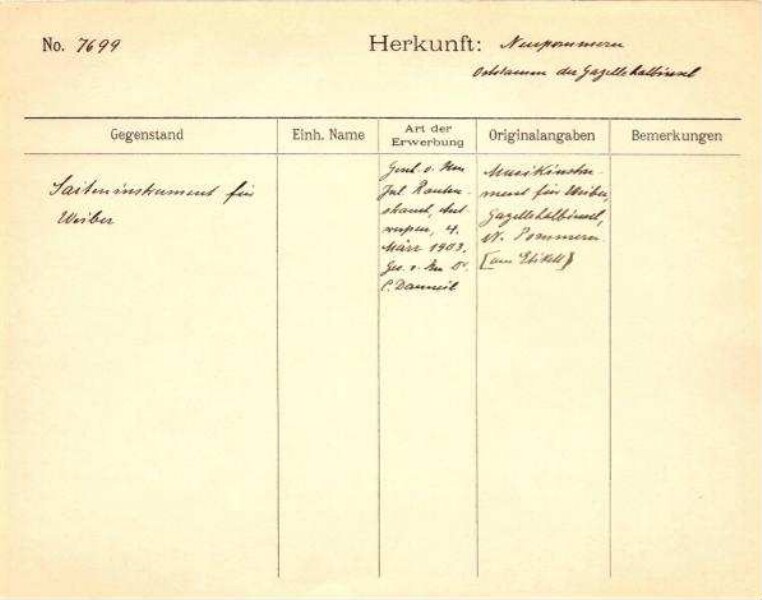 No. 7699
Herkunft: Neupommern
Oststamm der Gazellehalbinsel
Gegenstand
Einh. Name
Art der Erwerbung
Originalangaben
Bemerkungen
Saiteninstrument für
Weiber
Gesch. v. Hrn
Jul. Rauten-
strauch, Ant-
werpen, 4.
März 1903.
Ges. v. Hrn Dr.
C. Danneil
Musikinstru-
ment für Weiber,
Gazellehalbinsel,
N. Pommern.
[am Etikett]